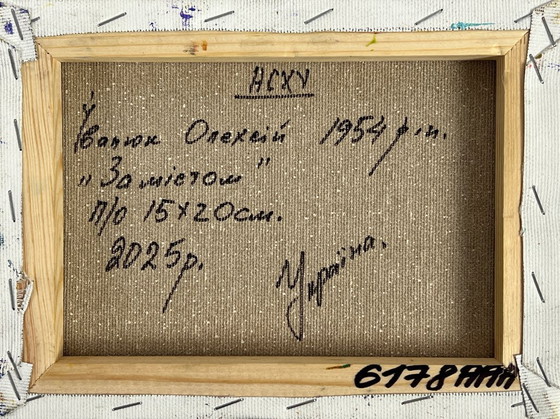 НСХУ
Іванюк Олексій 1954 р.н.
"За містом"
п/о 15х20см.
2025р.
Україна.
6178